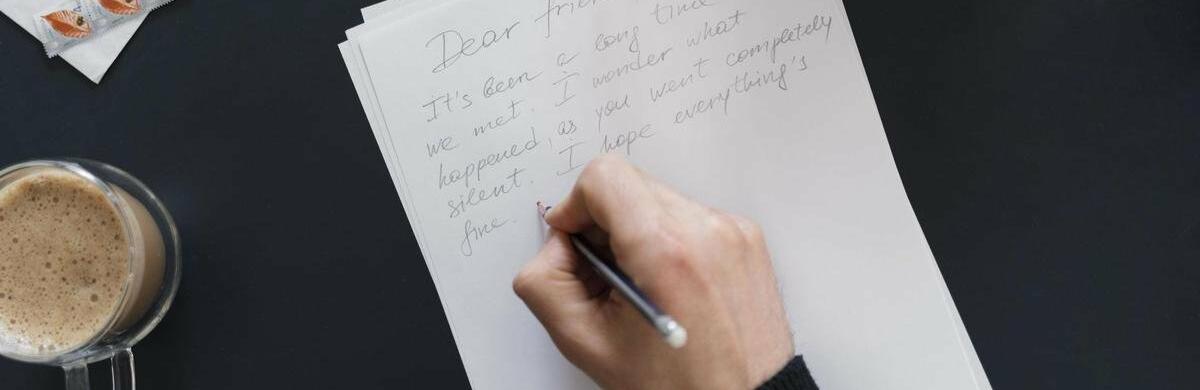 Dear friend
It's been a long time
we met. I wonder what
happened, as you went completely
silent. I hope everything's
fine.